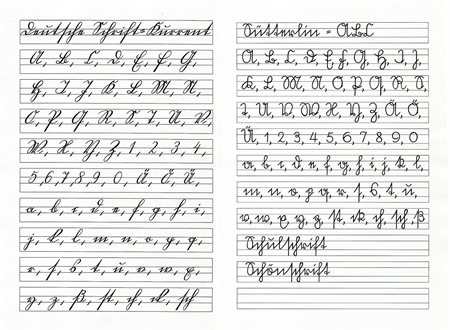 Deutsche Schrift=Kurrent
A, B, C, D, E, F, G,
H, I, J, K, L, M, N,
O, P, Q, R, S, T, U, V,
W, X, Y, Z, 1, 2, 3, 4,
5,6,7,8,9,0, Ä, Ö, Ü,
a, b, c, d, e, f, g, h, i,
j, k, l, m, n, o, p, q,
r, ſ, s, t, u, v, w, x,
y, z, ß, st, ch, ck, sch
Sütterlin = ABC
A, B, C, D, E, F, G, H, I, J,
K, L, M, N, O, P, Q, R, S,
T, U, V, W, X, Y, Z, Ä, Ö,
Ü, 1, 2, 3, 4, 5, 6, 7, 8, 9, 0
a, b, c, d, e, f, g, h, i, j, k, l,
m, n, o, p, q, r, ſ, s, t, u,
v, w, x, y, z, st, ck, ch, sch, ß
Schulschrift
Schönschrift